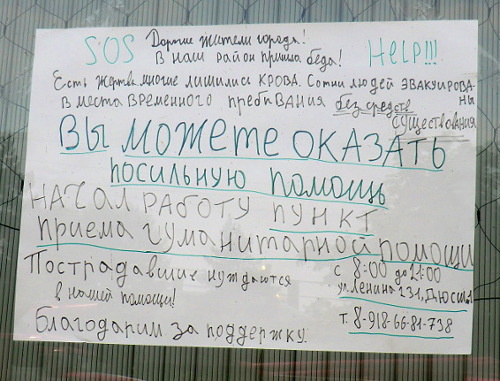 SOS Дорогие жители города! Help!!!
В наш район пришла беда!
Есть жертвы, многие лишились КРОВА. Сотни людей эвакуированы
в места временного пребивания без средств
существования
Вы можете оказать
посильную помощь
Начал работу пункт
приема гуманитарной помощи
Пострадавшие нуждаются
в нашей помощи!
с 8:00 до 21:00
ул Ленина 231, Дюсш 1
т. 8-918-66-81-738
Благодарим за поддержку.